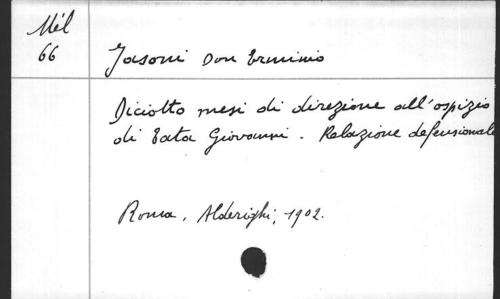 Mél
66
Jasoni Don Erminio
Diciotto mesi di direzione all'ospizio
di Tata Giovanni. Relazione defensionale
Roma, Alderighi, 1902.